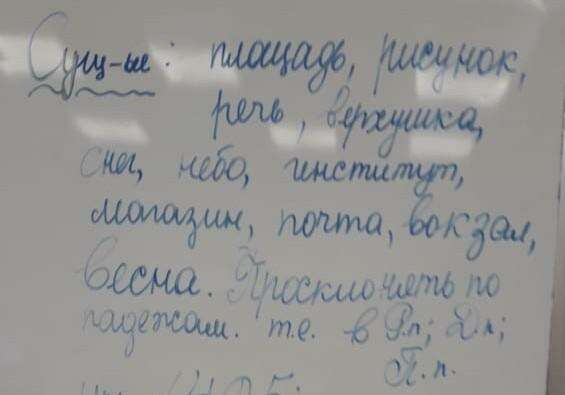 Сущ-ые: площадь, рисунок,
речь, верхушка,
снег, небо, институт,
магазин, почта, вокзал,
весна. Просклонять по
падежам. т.е. в Р.п; Д.п;
П.п.